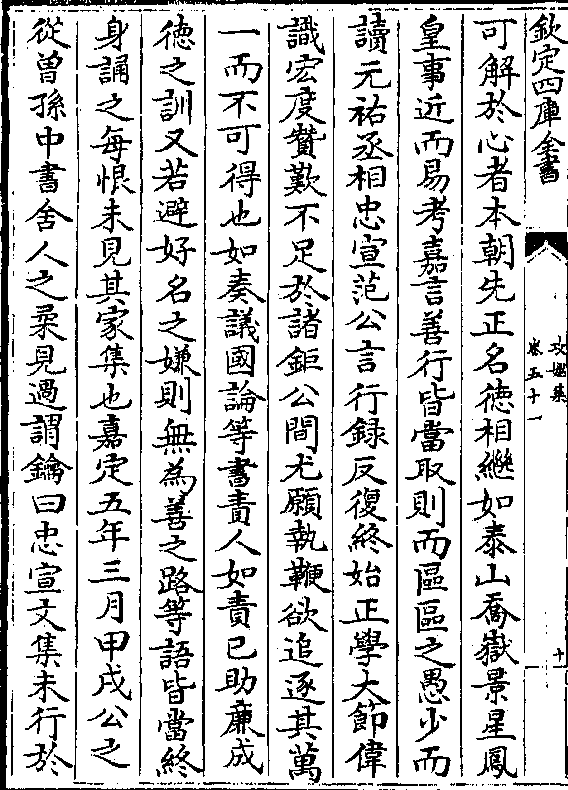 欽定四庫全書
攻媿集
卷五十一
十
可解於心者本朝先正名德相繼如泰山喬嶽景星鳳
皇事近而易考嘉言善行皆當取則而區區之愚少而
讀元祐丞相忠宣范公言行録反復終始正學大節偉
識宏度贊歎不足於諸鉅公間尤願執鞭欲追逐其萬
一而不可得也如奏議國論等書責人如責己助亷成
徳之訓又若避好名之嫌則無為善之路等語皆當終
身誦之每恨未見其家集也嘉定五年三月甲戌公之
從曾孫中書舍人之柔見過謂鑰曰忠宣文集未行於